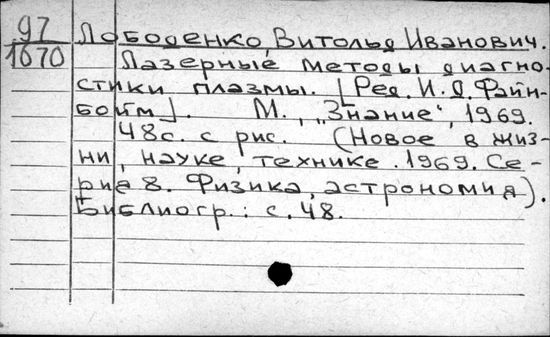 97
1670
Лободенко, Витольд Иванович.
Лазерные методы диагно-
стики плазмы. [Ред. И. Д. Файн-
бойм]. М., „Знание“, 1969.
48 с. с рис. (Новое в жиз-
ни, науке, технике. 1969. Се-
рия 8. Физика, астрономия).
Библиогр.: с. 48.